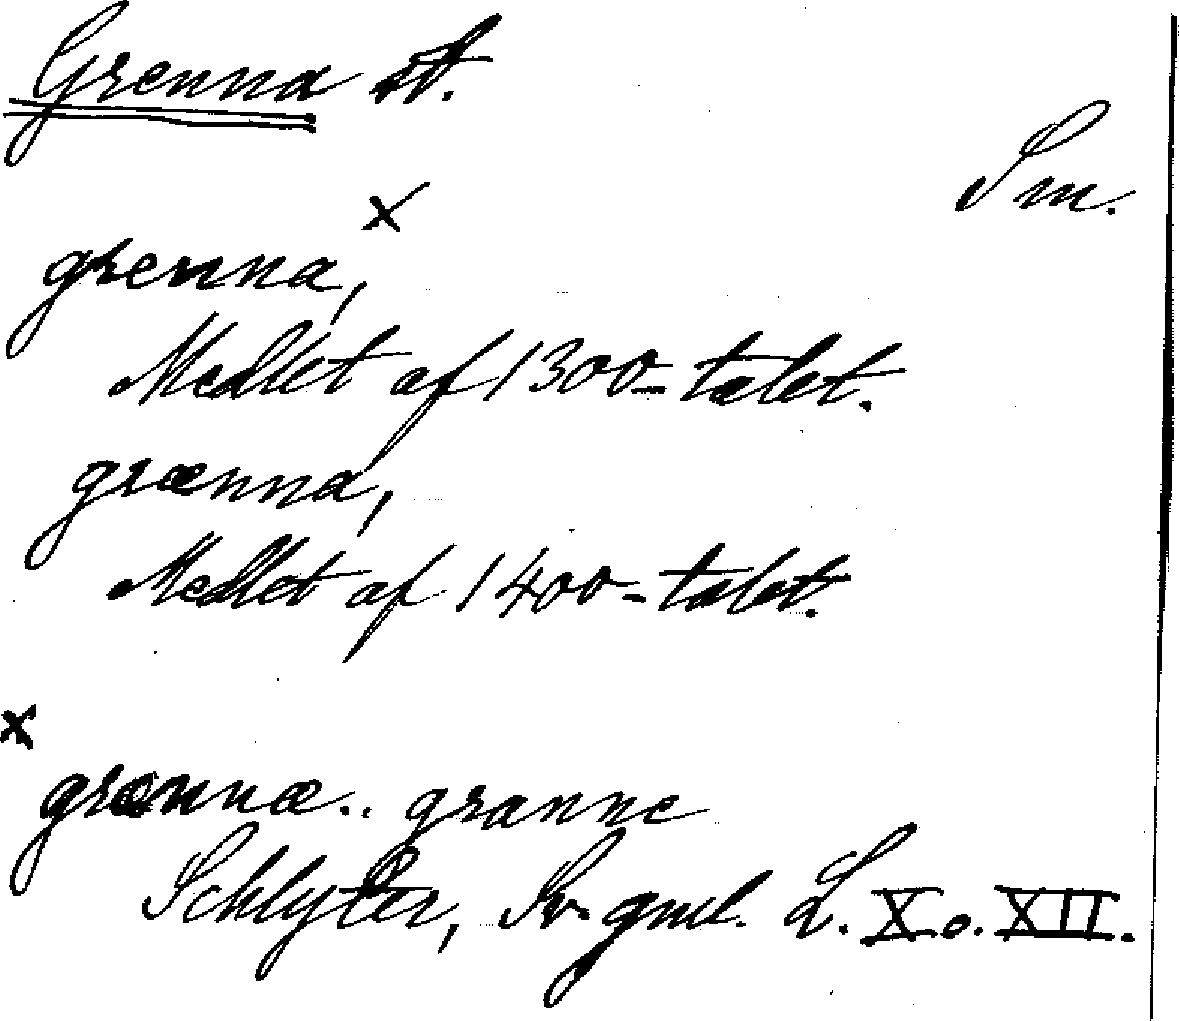 Grenna st.
Sm.
×
grenna,
Medlet af 1300-talet.
grænna,
Medlet af 1400-talet.
×
grænnæ.. granne
Schlyter, Sv. gml. L. X o. XII.